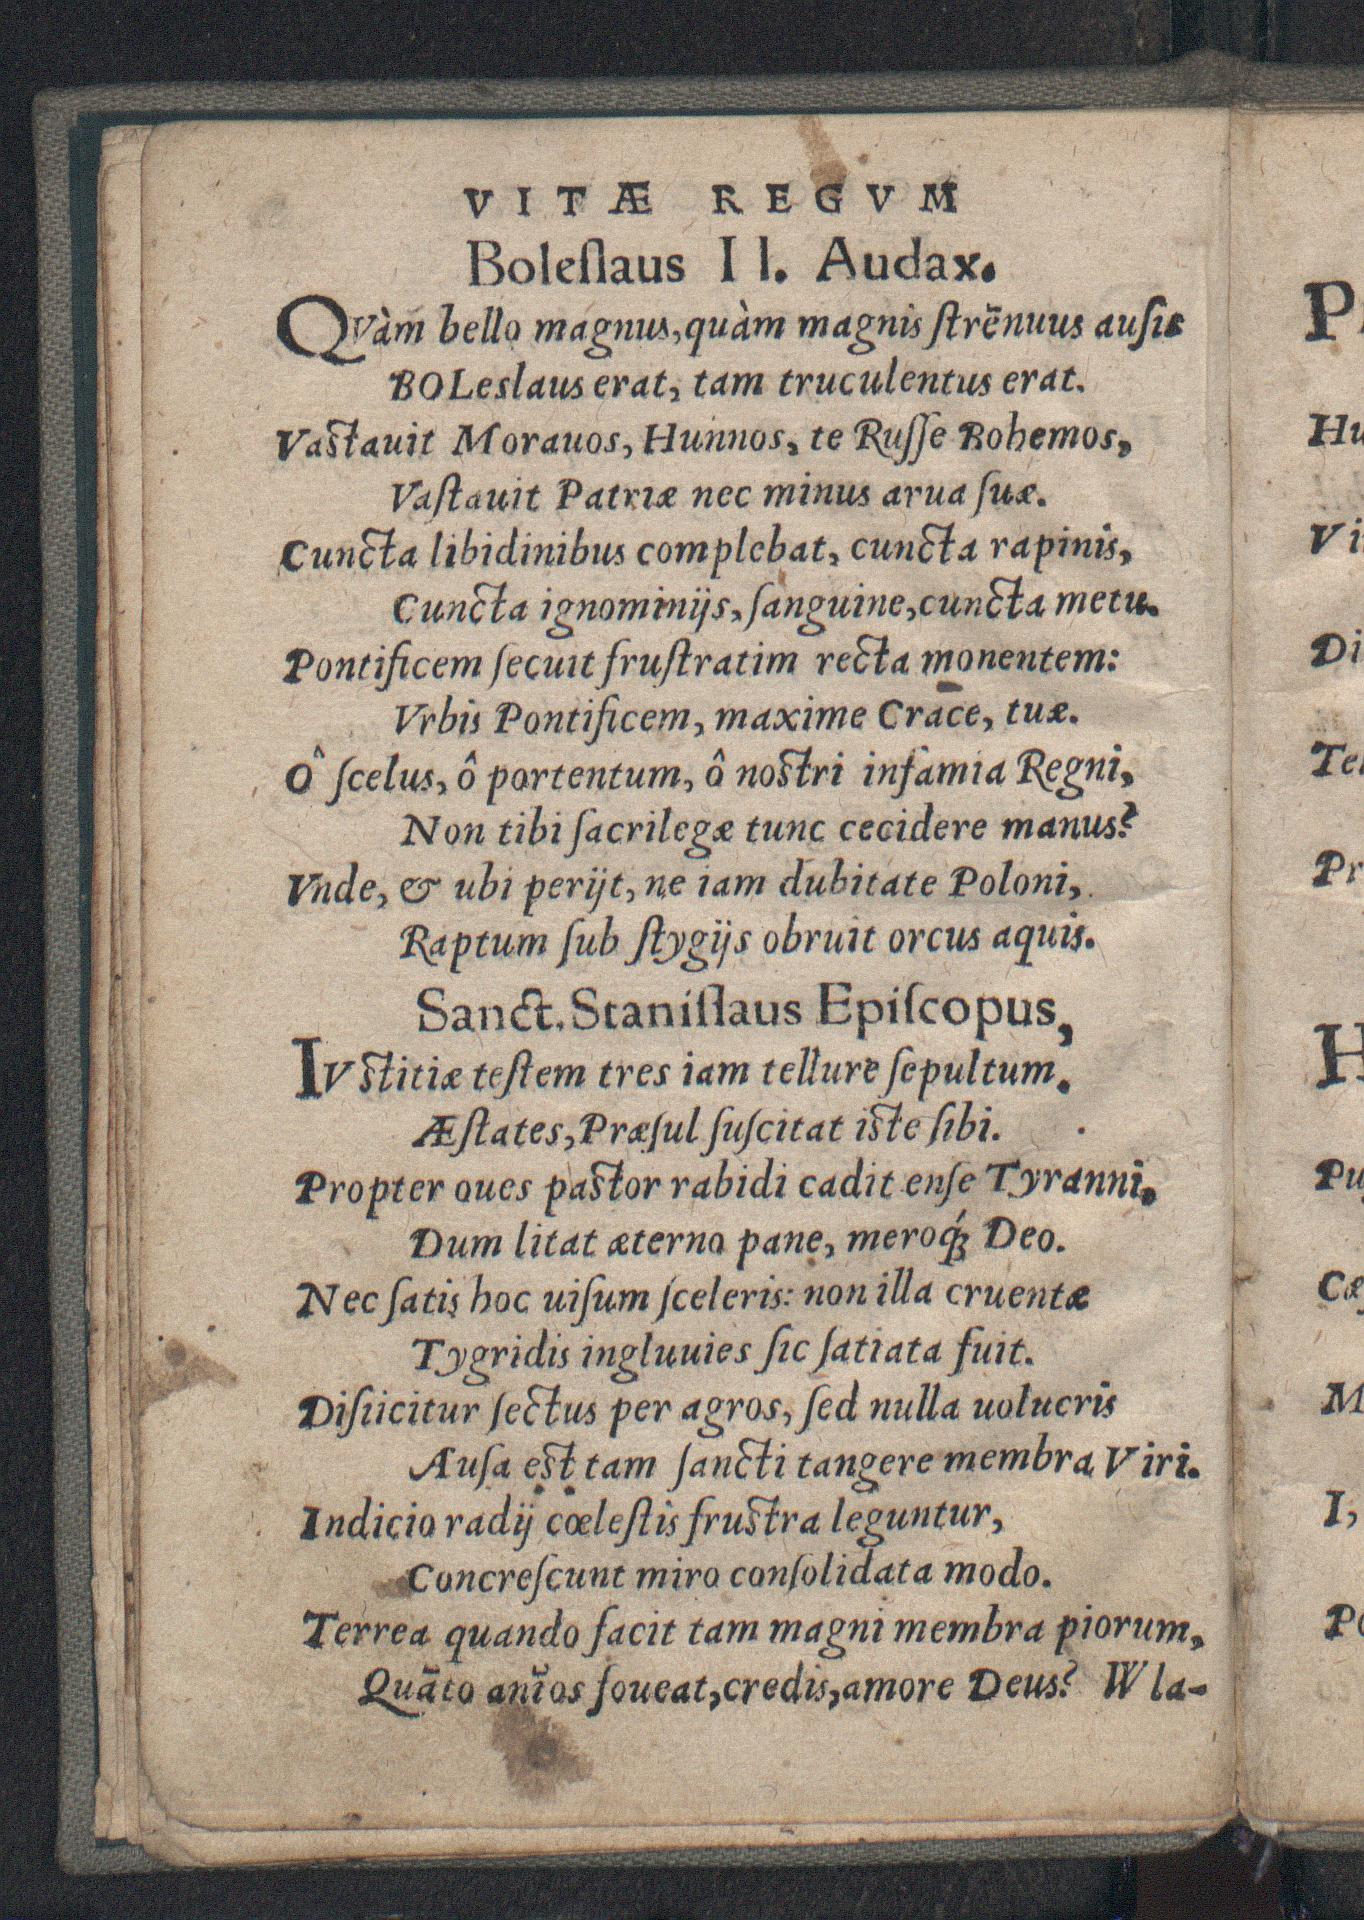 VITÆ REGVM
Boleſlaus II. Audax.
QVàm bello magnus, quàm magnis ſtrēnuus auſis
BOLeslaus erat, tam truculentus erat.
Vaſtauit Morauos, Hunnos, te Ruſſe Bohemos,
Vaſtauit Patriæ nec minus arua ſuæ.
Cuncta libidinibus complebat, cuncta rapinis,
Cuncta ignominijs, ſanguine, cuncta metu.
Pontificem ſecuit fruſtratim recta monentem:
Vrbis Pontificem, maxime Crace, tuæ.
Ô ſcelus, ô portentum, ô noſtri infamia Regni,
Non tibi ſacrilegæ tunc cecidere manus?
Vnde, & ubi perijt, ne iam dubitate Poloni,
Raptum ſub ſtygijs obruit orcus aquis.
Sanct. Staniſlaus Epiſcopus,
IVſtitiæ teſtem tres iam tellure ſepultum.
Æſtates, Præſul ſuſcitat iſte ſibi.
Propter oues paſtor rabidi cadit enſe Tyranni,
Dum litat æterno pane, meroq́ꝫ Deo.
Nec ſatis hoc uiſum ſceleris: non illa cruentæ
Tygridis ingluuies ſic ſatiata fuit.
Diſiicitur ſectus per agros, ſed nulla uolucris
Auſa eſt tam ſancti tangere membra Viri.
Indicio radij cœleſtis fruſtra leguntur,
Concreſcunt miro conſolidata modo.
Terrea quando facit tam magni membra piorum,
Quāto anīos foueat, credis, amore Deus? Wla-
P
Hu
Vi
Di
Te
Pr
H
Pu
Cæ
M
I,
Po